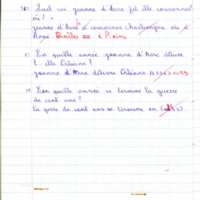 Quel roi Jeanne d'Arc fit elle couronner
où ?
Jeanne d'Arc a couronner Charlemagne
Rome. Charles VII à Reims
En quelle année Jeanne d'Arc délivre
t. elle Orléans ?
Jeanne d'Arc délivre Orléans
En quelle année se termine la guerre
de cent ans ?
La gerre de cent ans se termine en